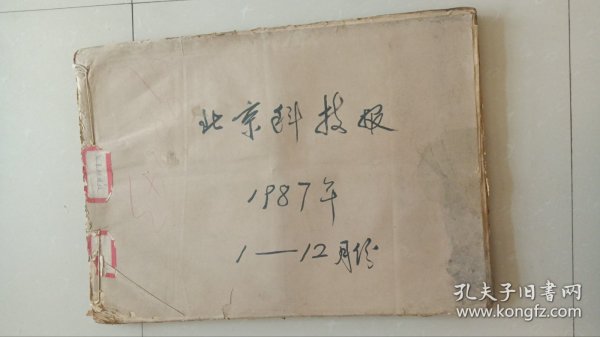 北京科技报
1987年
1—12月份
孔夫子旧书网
www.kongfz.com